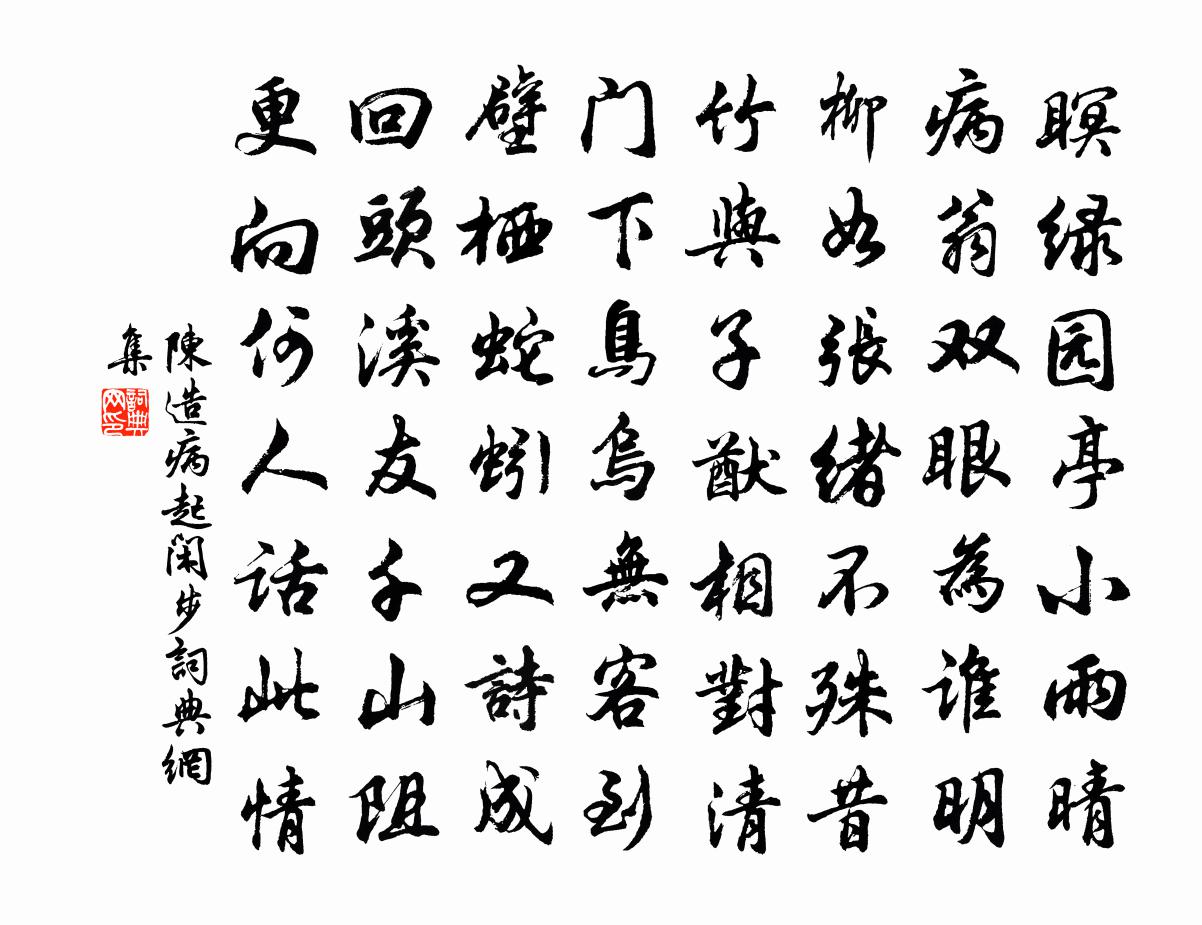 暝绿园亭小雨晴
病翁双眼為谁明
柳如張緒不殊昔
竹與子猷相對清
门下臯烏無客到
壁栖蛇蚓又詩成
回頭溪友千山阻
更向何人話此情
陳造病起闲步詞典網
集
詞典
网印